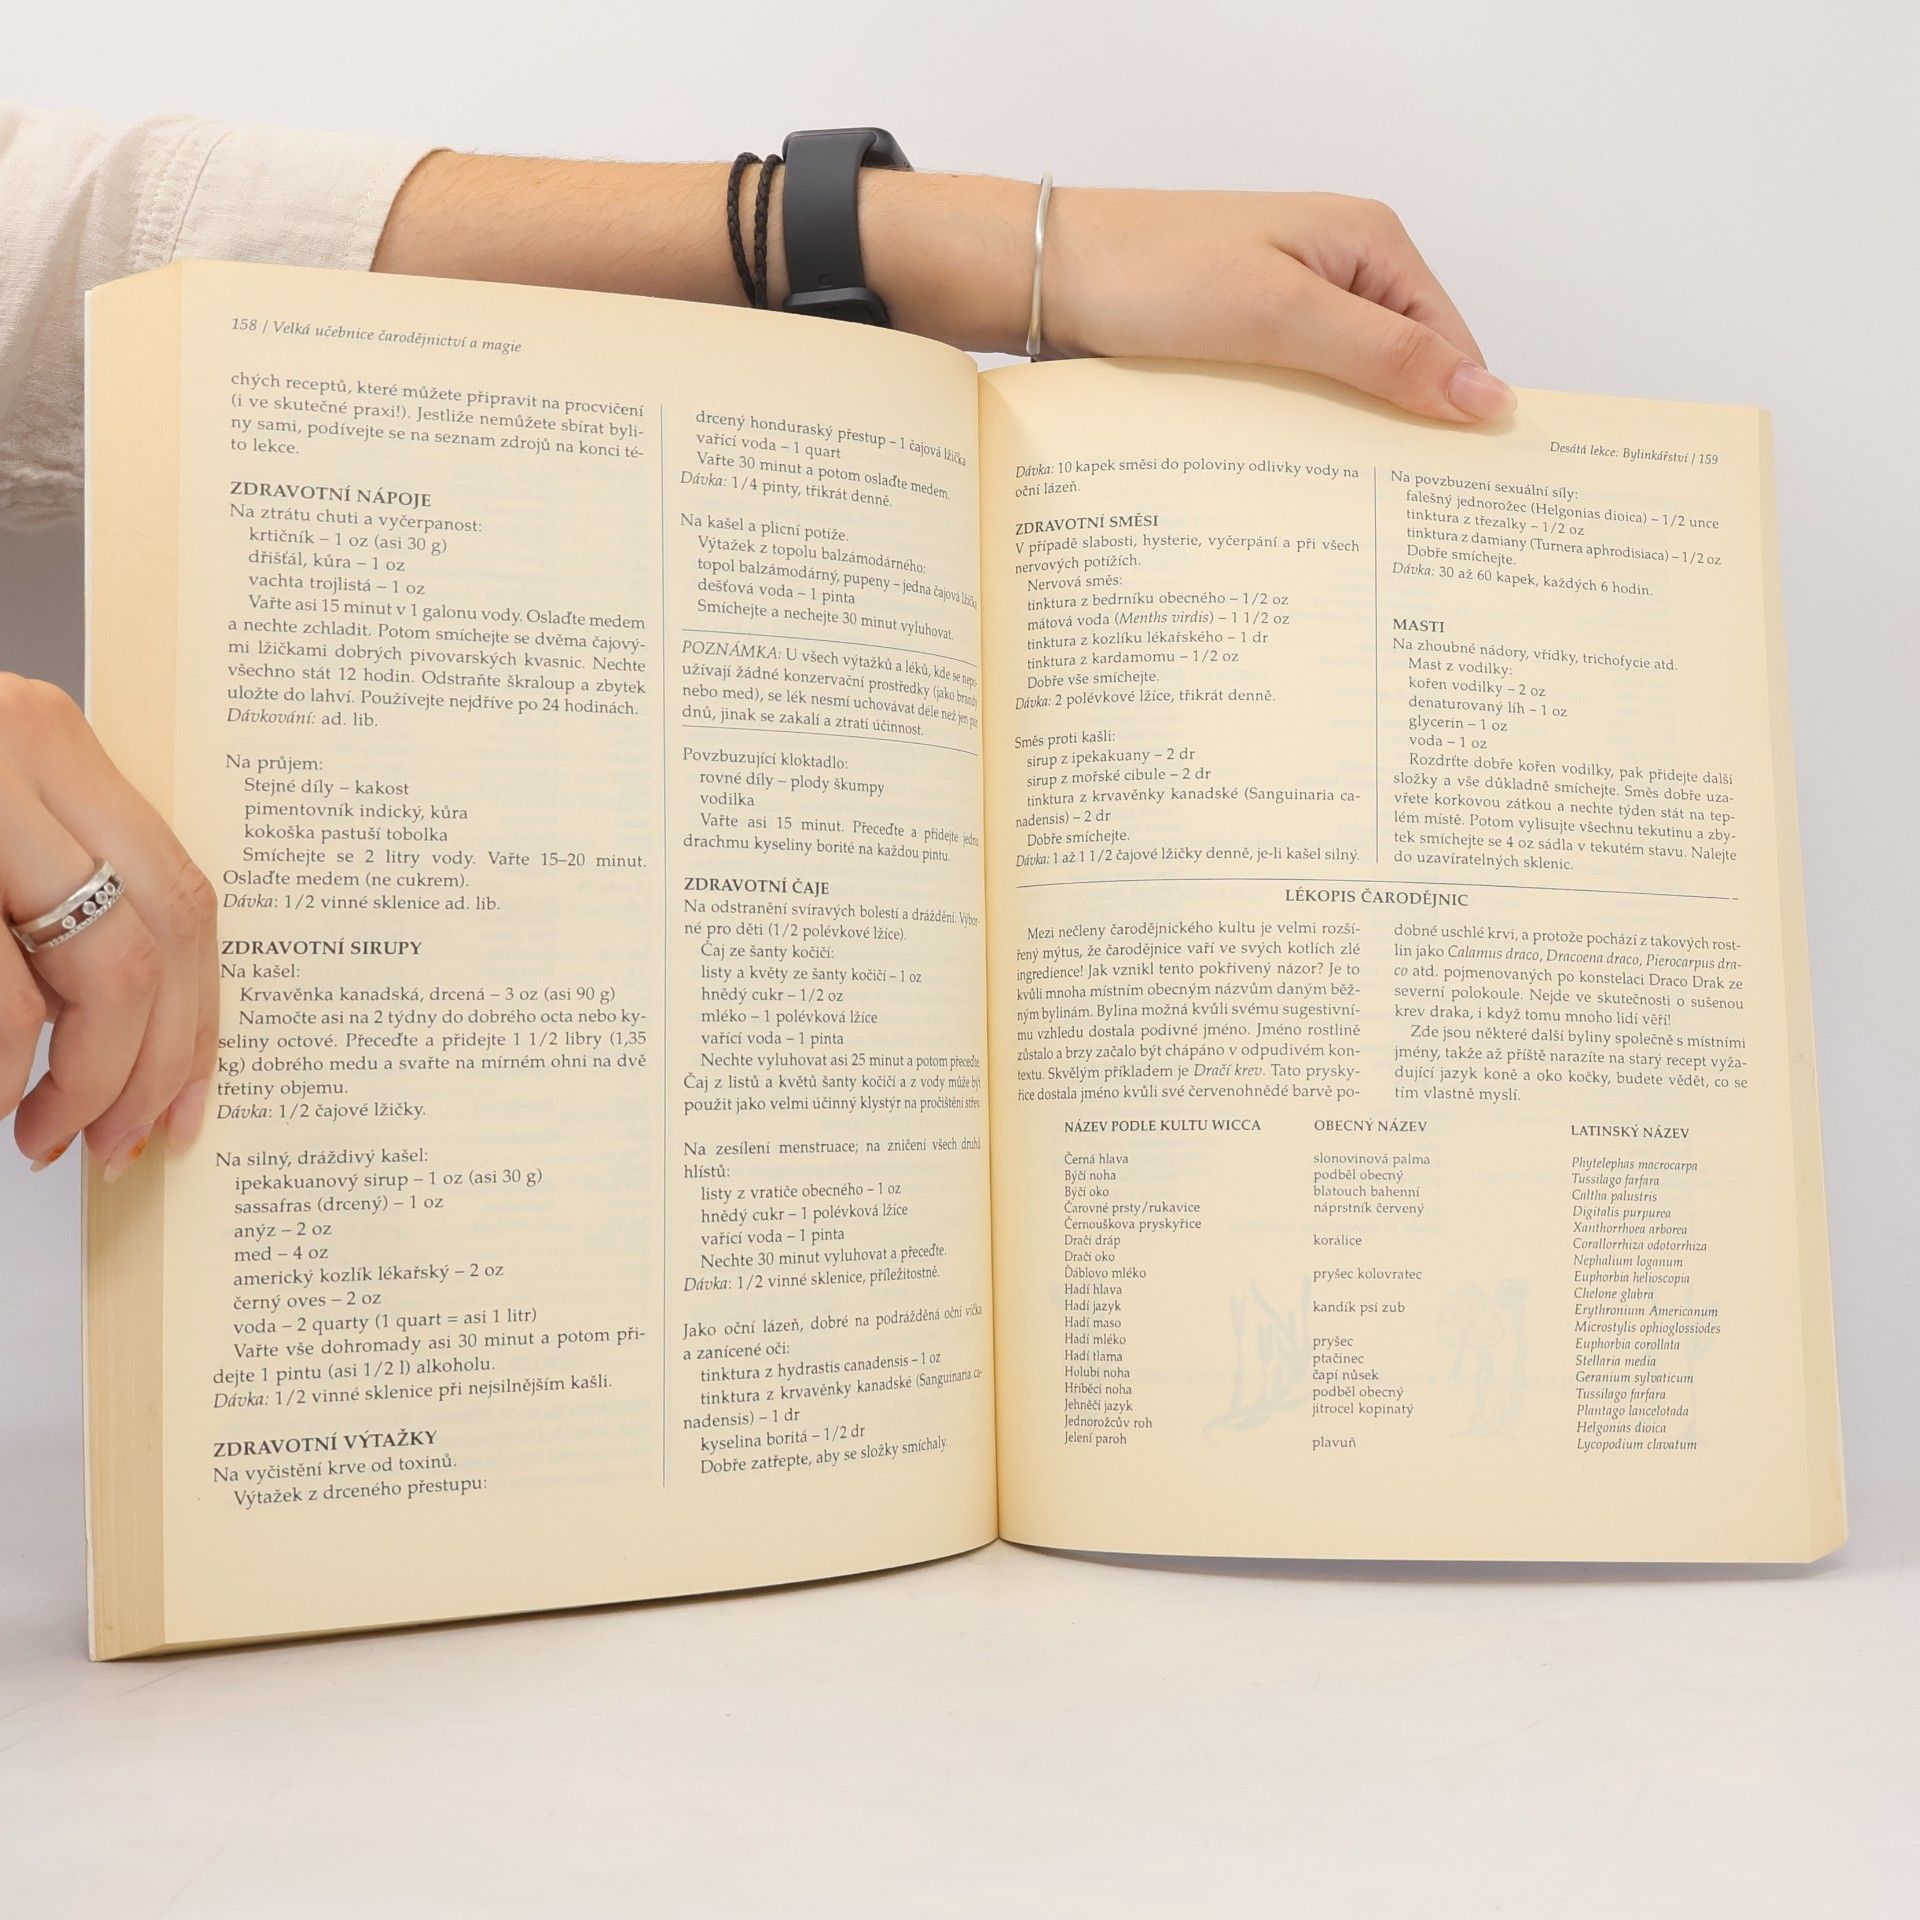 158 / Velká učebnice čarodějnictví a magie
chých receptů, které můžete připravit na procvičení
(i ve skutečné praxi!). Jestliže nemůžete sbírat byli-
ny sami, podívejte se na seznam zdrojů na konci té-
to lekce.
ZDRAVOTNÍ NÁPOJE
Na ztrátu chuti a vyčerpanost:
krtičník – 1 oz (asi 30 g)
dřišťál, kůra – 1 oz
vachta trojlistá – 1 oz
Vařte asi 15 minut v 1 galonu vody. Oslaďte medem
a nechte zchladit. Potom smíchejte se dvěma čajový-
mi lžičkami dobrých pivovarských kvasnic. Nechte
všechno stát 12 hodin. Odstraňte škraloup a zbytek
uložte do lahví. Používejte nejdříve po 24 hodinách.
Dávkování: ad. lib.
Na průjem:
Stejné díly – kakost
pimentovník indický, kůra
kokoška pastuší tobolka
Smíchejte se 2 litry vody. Vařte 15–20 minut.
Oslaďte medem (ne cukrem).
Dávka: 1/2 vinné sklenice ad. lib.
ZDRAVOTNÍ SIRUPY
Na kašel:
Krvavěnka kanadská, drcená – 3 oz (asi 90 g)
Namočte asi na 2 týdny do dobrého octa nebo ky-
seliny octové. Přeceďte a přidejte 1 1/2 libry (1,35
kg) dobrého medu a svařte na mírném ohni na dvě
třetiny objemu.
Dávka: 1/2 čajové lžičky.
Na silný, dráždivý kašel:
ipekakuanový sirup – 1 oz (asi 30 g)
sassafras (drcený) – 1 oz
anýz – 2 oz
med – 4 oz
americký kozlík lékařský – 2 oz
černý oves – 2 oz
voda – 2 quarty (1 quart = asi 1 litr)
Vařte vše dohromady asi 30 minut a potom při-
dejte 1 pintu (asi 1/2 l) alkoholu.
Dávka: 1/2 vinné sklenice při nejsilnějším kašli.
ZDRAVOTNÍ VÝTAŽKY
Na vyčistění krve od toxinů.
Výtažek z drceného přestupu:
drcený honduraský přestup – 1 čajová lžička
vařící voda – 1 quart
Vařte 30 minut a potom oslaďte medem.
Dávka: 1/4 pinty, třikrát denně.
Na kašel a plicní potíže.
Výtažek z topolu balzámodárného:
topol balzámodárný, pupeny – jedna čajová lžička
dešťová voda – 1 pinta
Smíchejte a nechejte 30 minut vyluhovat.
POZNÁMKA: U všech výtažků a léků, kde se nepo-
užívají žádné konzervační prostředky (jako brandy
nebo med), se lék nesmí uchovávat déle než jen pár
dnů, jinak se zakalí a ztratí účinnost.
Povzbuzující kloktadlo:
rovné díly – plody škumpy
vodilka
Vařte asi 15 minut. Přeceďte a přidejte jednu
drachmu kyseliny borité na každou pintu.
ZDRAVOTNÍ ČAJE
Na odstranění svíravých bolestí a dráždění. Výbor-
né pro děti (1/2 polévkové lžíce).
Čaj ze šanty kočičí:
listy a květy ze šanty kočičí – 1 oz
hnědý cukr – 1/2 oz
mléko – 1 polévková lžíce
vařící voda – 1 pinta
Nechte vyluhovat asi 25 minut a potom přeceďte.
Čaj z listů a květů šanty kočičí a z vody může být
použit jako velmi účinný klystýr na pročištění střev.
Na zesílení menstruace; na zničení všech druhů
hlístů:
listy z vratiče obecného – 1 oz
hnědý cukr – 1 polévková lžíce
vařící voda – 1 pinta
Nechte 30 minut vyluhovat a přeceďte.
Dávka: 1/2 vinné sklenice, příležitostně.
Jako oční lázeň, dobré na podrážděná oční víčka
a zanícené oči:
tinktura z hydrastis canadensis – 1 oz
tinktura z krvavěnky kanadské (Sanguinaria ca-
nadensis) – 1 dr
kyselina boritá – 1/2 dr
Dobře zatřepte, aby se složky smíchaly.
Desátá lekce: Bylinkářství / 159
Dávka: 10 kapek směsi do poloviny odlivky vody na
oční lázeň.
ZDRAVOTNÍ SMĚSI
V případě slabosti, hysterie, vyčerpání a při všech
nervových potížích.
Nervová směs:
tinktura z bedrníku obecného – 1/2 oz
mátová voda (Menths virdis) – 1 1/2 oz
tinktura z kozlíku lékařského – 1 dr
tinktura z kardamomu – 1/2 oz
Dobře vše smíchejte.
Dávka: 2 polévkové lžíce, třikrát denně.
Směs proti kašli:
sirup z ipekakuany – 2 dr
sirup z mořské cibule – 2 dr
tinktura z krvavěnky kanadské (Sanguinaria ca-
nadensis) – 2 dr
Dobře smíchejte.
Dávka: 1 až 1 1/2 čajové lžičky denně, je-li kašel silný.
Na povzbuzení sexuální síly:
falešný jednorožec (Helgonias dioica) – 1/2 unce
tinktura z třezalky – 1/2 oz
tinktura z damiany (Turnera aphrodisiaca) – 1/2 oz
Dobře smíchejte.
Dávka: 30 až 60 kapek, každých 6 hodin.
MASTI
Na zhoubné nádory, vřídky, trichofycie atd.
Mast z vodilky:
kořen vodilky – 2 oz
denaturovaný líh – 1 oz
glycerin – 1 oz
voda – 1 oz
Rozdrťte dobře kořen vodilky, pak přidejte další
složky a vše důkladně smíchejte. Směs dobře uza-
vřete korkovou zátkou a nechte týden stát na tep-
lém místě. Potom vylisujte všechnu tekutinu a zby-
tek smíchejte se 4 oz sádla v tekutém stavu. Nalejte
do uzavíratelných sklenic.
LÉKOPIS ČARODĚJNIC
Mezi nečleny čarodějnického kultu je velmi rozší-
řený mýtus, že čarodějnice vaří ve svých kotlích zlé
ingredience! Jak vznikl tento pokřivený názor? Je to
kvůli mnoha místním obecným názvům daným běž-
ným bylinám. Bylina možná kvůli svému sugestivní-
mu vzhledu dostala podivné jméno. Jméno rostlině
zůstalo a brzy začalo být chápáno v odpudivém kon-
textu. Skvělým příkladem je Dračí krev. Tato prysky-
řice dostala jméno kvůli své červenohnědé barvě po-
dobné uschlé krvi, a protože pochází z takových rost-
lin jako Calamus draco, Dracoena draco, Pierocarpus dra-
co atd. pojmenovaných po konstelaci Draco Drak ze
severní polokoule. Nejde ve skutečnosti o sušenou
krev draka, i když tomu mnoho lidí věří!
Zde jsou některé další byliny společně s místními
jmény, takže až příště narazíte na starý recept vyža-
dující jazyk koně a oko kočky, budete vědět, co se
tím vlastně myslí.
NÁZEV PODLE KULTU WICCA OBECNÝ NÁZEV LATINSKÝ NÁZEV
Černá hlava slonovinová palma Phytelephas macrocarpa
Býčí noha podběl obecný Tussilago farfara
Býčí oko blatouch bahenní Caltha palustris
Čarovné prsty/rukavice náprstník červený Digitalis purpurea
Černouškova pryskyřice Xanthorrhoea arborea
Dračí dráp korálice Corallorrhiza odotorrhiza
Dračí oko Nephalium loganum
Ďáblovo mléko pryšec kolovratec Euphorbia helioscopia
Hadí hlava Chelone glabra
Hadí jazyk kandík psí zub Erythronium Americanum
Hadí maso Microstylis ophioglossiodes
Hadí mléko pryšec Euphorbia corollata
Hadí tlama ptačinec Stellaria media
Holubí noha čapí nůsek Geranium sylvaticum
Hříběcí noha podběl obecný Tussilago farfara
Jehněčí jazyk jitrocel kopinatý Plantago lancelotada
Jednorožcův roh Helgonias dioica
Jelení paroh plavuň Lycopodium clavatum